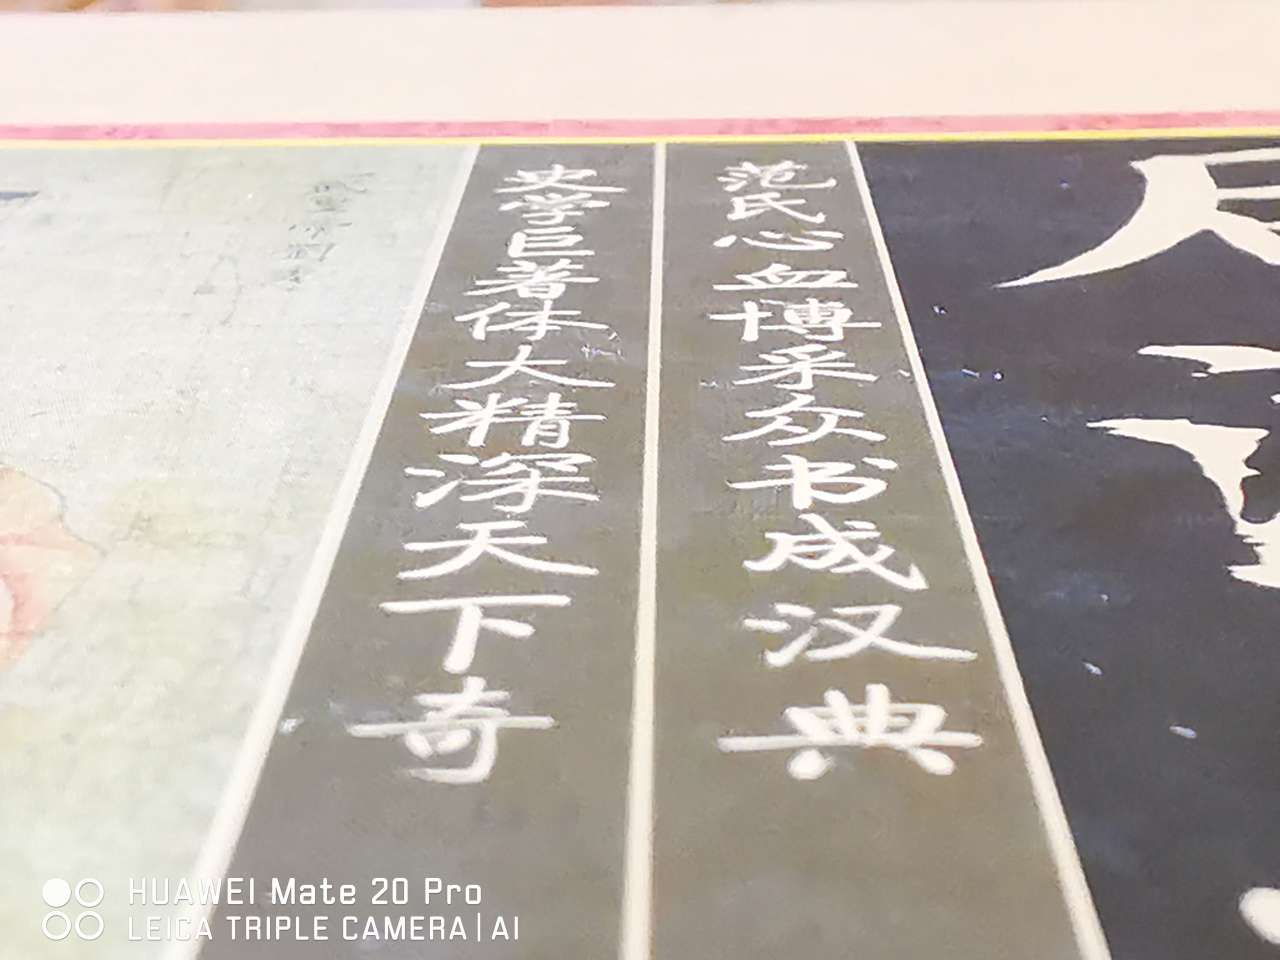 范氏心血博采众书成汉典
史学巨著体大精深天下奇
HUAWEI Mate 20 Pro
LEICA TRIPLE CAMERA|AI